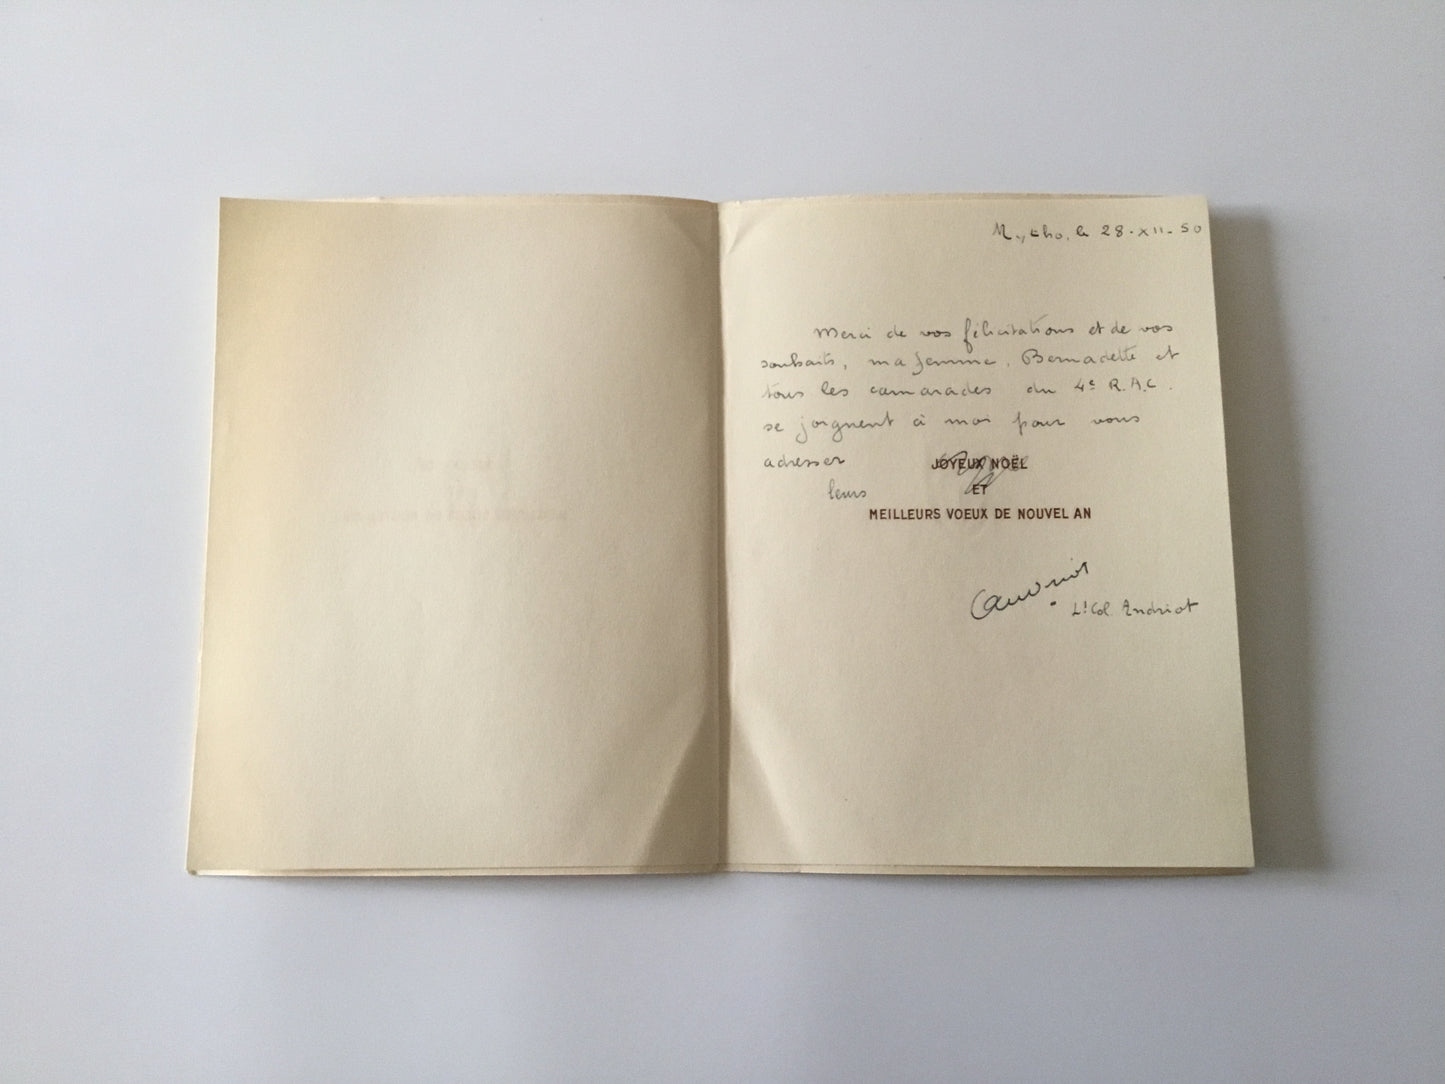 Mytho, le 28-XII-50
Merci de vos félicitations et de vos
souhaits, ma femme, Bernadette et
tous les camarades du 4e R.A.C.
se joignent à moi pour vous
adresser JOYEUX NOËL
leurs ET
MEILLEURS VOEUX DE NOUVEL AN
Lt Col. Andriot